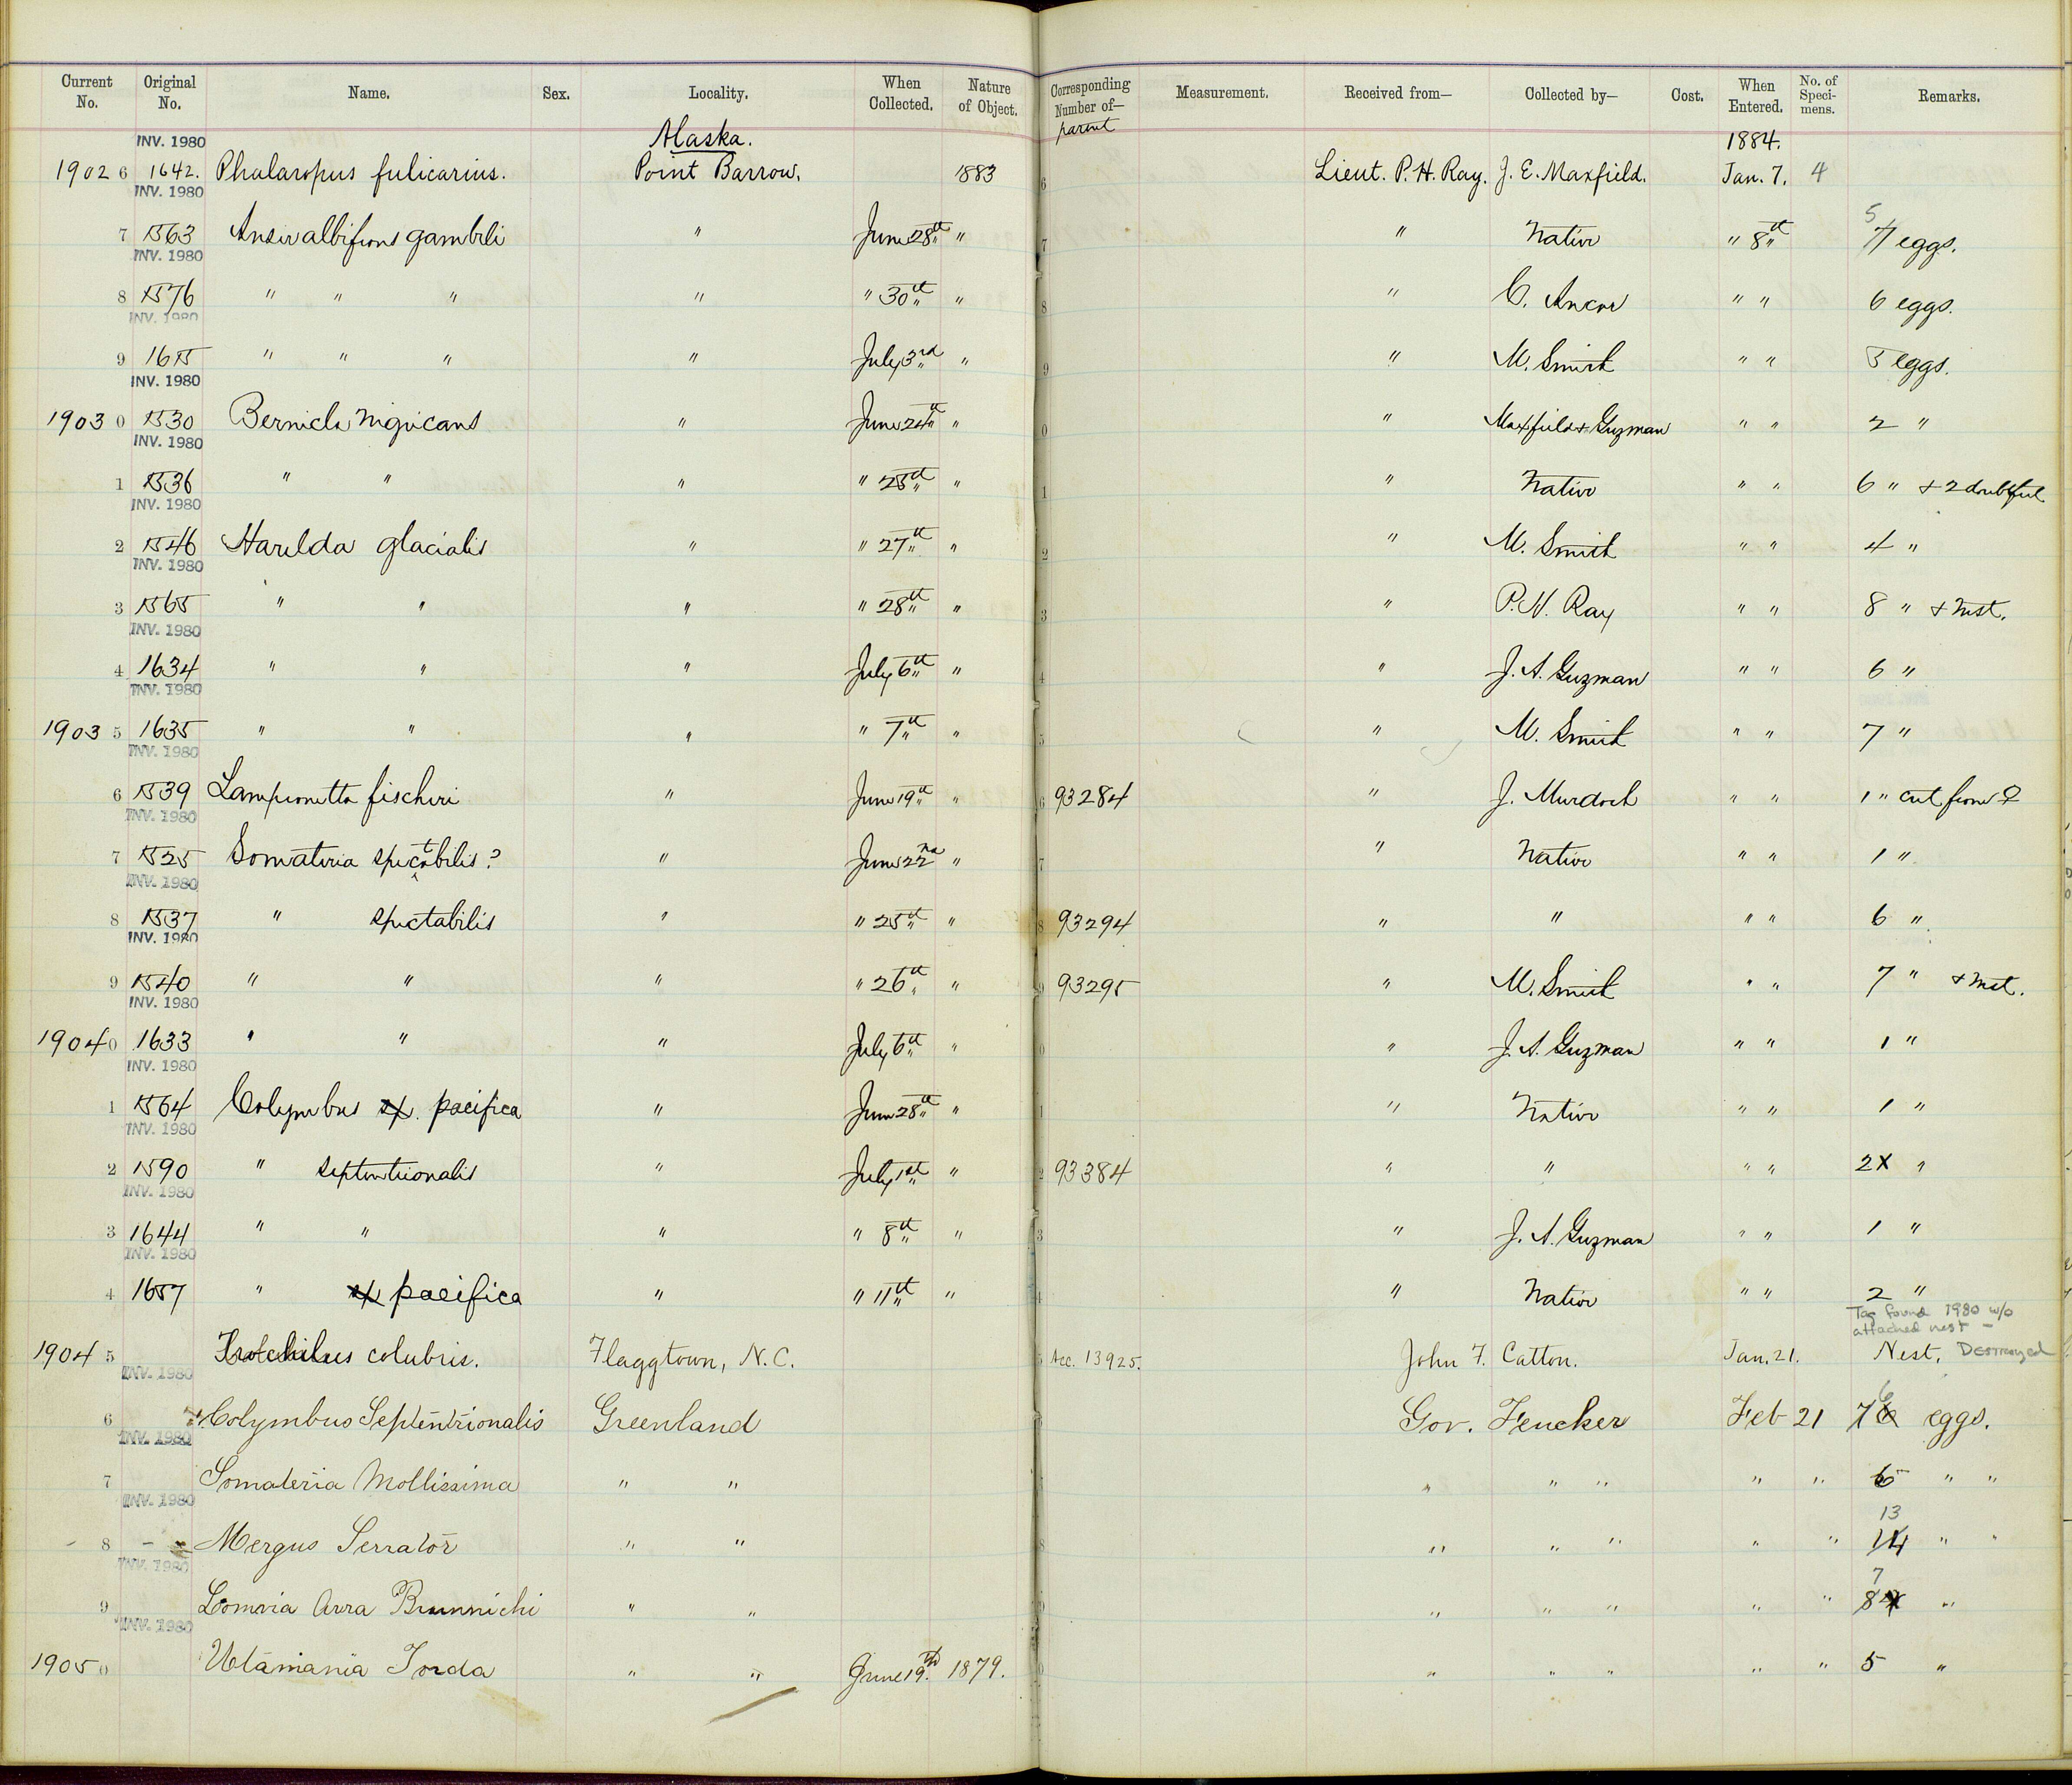 Current No. Original No. Name. Sex. Locality. When Collected. Nature of Object. Corresponding Number of— Measurement. Received from— Collected by— Cost. When Entered. No. of Specimens. Remarks.
INV. 1980 Alaska. parent 1884.
1902 6 1642. Phalaropus fulicarius. Point Barrow. 1883 6 Lieut. P. H. Ray. J. E. Maxfield. Jan. 7. 4
INV. 1980
5
7 1563 Anser albifrons gambeli " June 28th " 7 " Native " 8th 7 eggs.
INV. 1980
8 1576 " " " " " 30th " 8 " C. Ancor " " 6 eggs.
INV. 1980
9 1615 " " " " July 3rd " 9 " M. Smith " " 5 eggs.
INV. 1980
1903 0 1530 Bernicla nigricans " June 24th " 0 " Maxfield & Guzman " " 2 "
INV. 1980
1 1536 " " " " 25th " 1 " Native " " 6 " & 2 doubtful
INV. 1980
2 1546 Harelda glacialis " " 27th " 2 " M. Smith " " 4 "
INV. 1980
3 1565 " " " " 28th " 3 " P. H. Ray " " 8 " & nest.
INV. 1980
4 1634 " " " July 6th " 4 " J. A. Guzman " " 6 "
INV. 1980
1903 5 1635 " " " " 7th " 5 " M. Smith " " 7 "
INV. 1980
6 1539 Lampronetta fischeri " June 19th " 6 93284 " J. Murdoch " " 1 " cut from ♀
INV. 1980
7 1525 Somateria spectabilis? " June 22nd " 7 " Native " " 1 "
INV. 1980
8 1537 " spectabilis " " 25th " 8 93294 " " " " 6 "
INV. 1980
9 1540 " " " " 26th " 9 93295 " M. Smith " " 7 " & nest.
INV. 1980
1904 0 1633 " " " July 6th " 0 " J. A. Guzman " " 1 "
INV. 1980
1 1564 Colymbus sp. pacifica " June 28th " 1 " Native " " 1 "
INV. 1980
2 1590 " septentrionalis " July 1st " 2 93384 " " " " 2X "
INV. 1980
3 1644 " " " " 8th " 3 " J. A. Guzman " " 1 "
INV. 1980
4 1657 " sp pacifica " " 11th " 4 " Native " " 2 "
Tag found 1980 w/o
attached nest —
1904 5 Trochilus colubris. Flaggtown, N.C. 5 Acc. 13925. John F. Catton. Jan. 21. Nest. Destroyed
INV. 1980
6
6 Colymbus Septentrionalis Greenland Gov. Fencker Feb 21 76 eggs.
INV. 1980
7 Somateria Mollissima " " " " " " " 6 " "
INV. 1980
13
- 8 - Mergus Serrator " " 8 " " " " " 14 " "
INV. 1980
7
9 Lomvia Arra Brunnichi " " " " " " " 8 "
INV. 1980
1905 0 Utamania Torda " " June 19th 1879. " " " " " 5 "